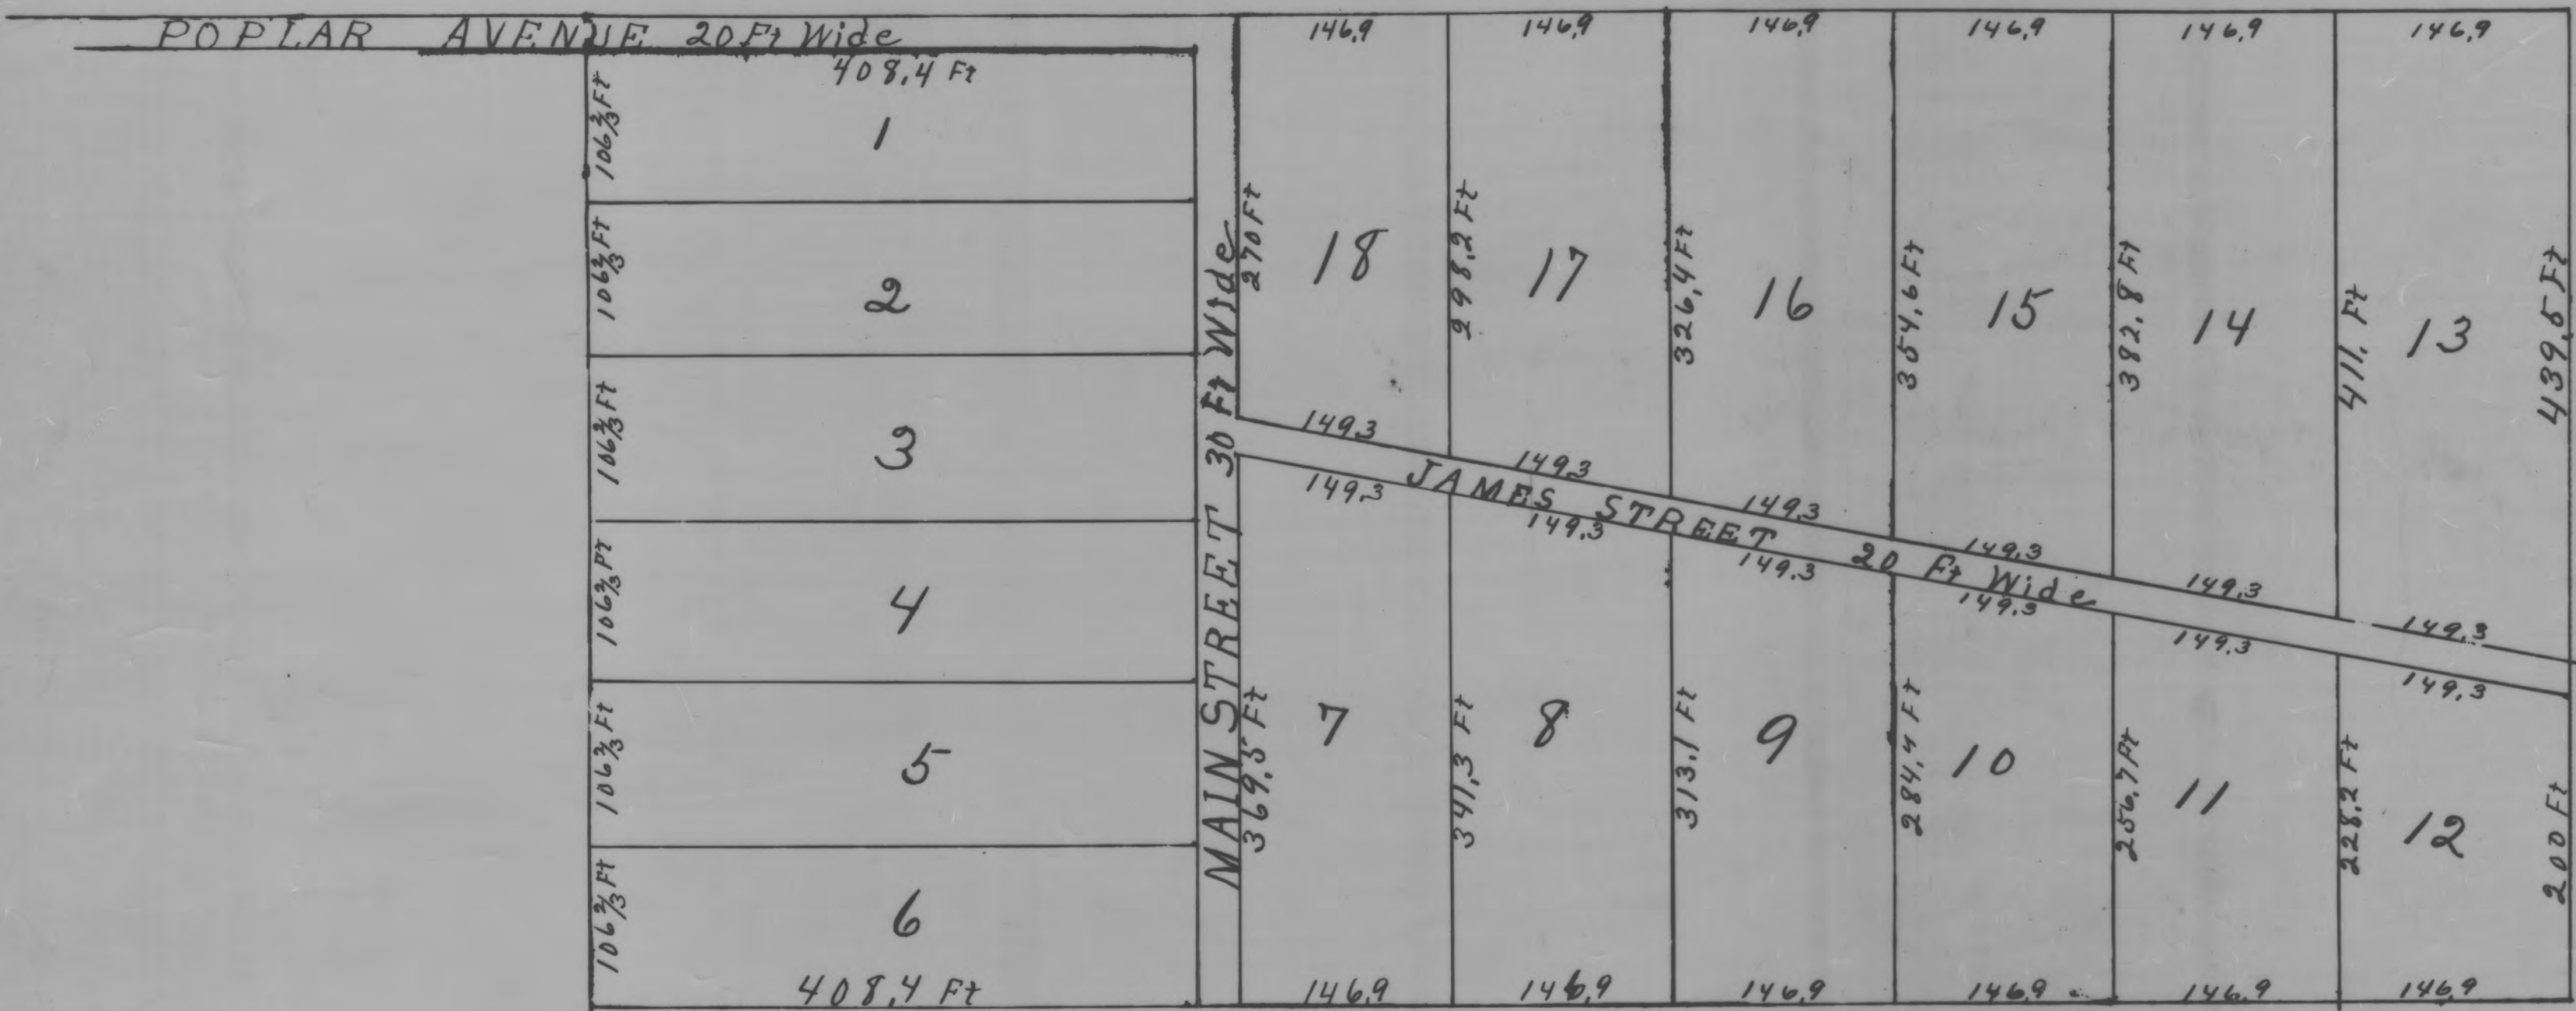 POPLAR AVENUE 20 Ft Wide
408.4 Ft
106 2/3 Ft
1
106 2/3 Ft
2
106 2/3 Ft
3
106 2/3 Ft
4
106 2/3 Ft
5
106 2/3 Ft
6
408.4 Ft
MAIN STREET 30 Ft Wide
146.9
146.9
146.9
146.9
146.9
146.9
270 Ft
18
298.2 Ft
17
326.4 Ft
16
354.6 Ft
15
382.8 Ft
14
411. Ft
13
439.5 Ft
149.3
149.3
149.3
149.3
149.3
149.3
JAMES STREET 20 Ft Wide
149.3
149.3
149.3
149.3
149.3
149.3
369.5 Ft
7
341.3 Ft
8
313.1 Ft
9
284.4 Ft
10
256.7 Ft
11
228.2 Ft
12
200 Ft
146.9
146.9
146.9
146.9
146.9
146.9